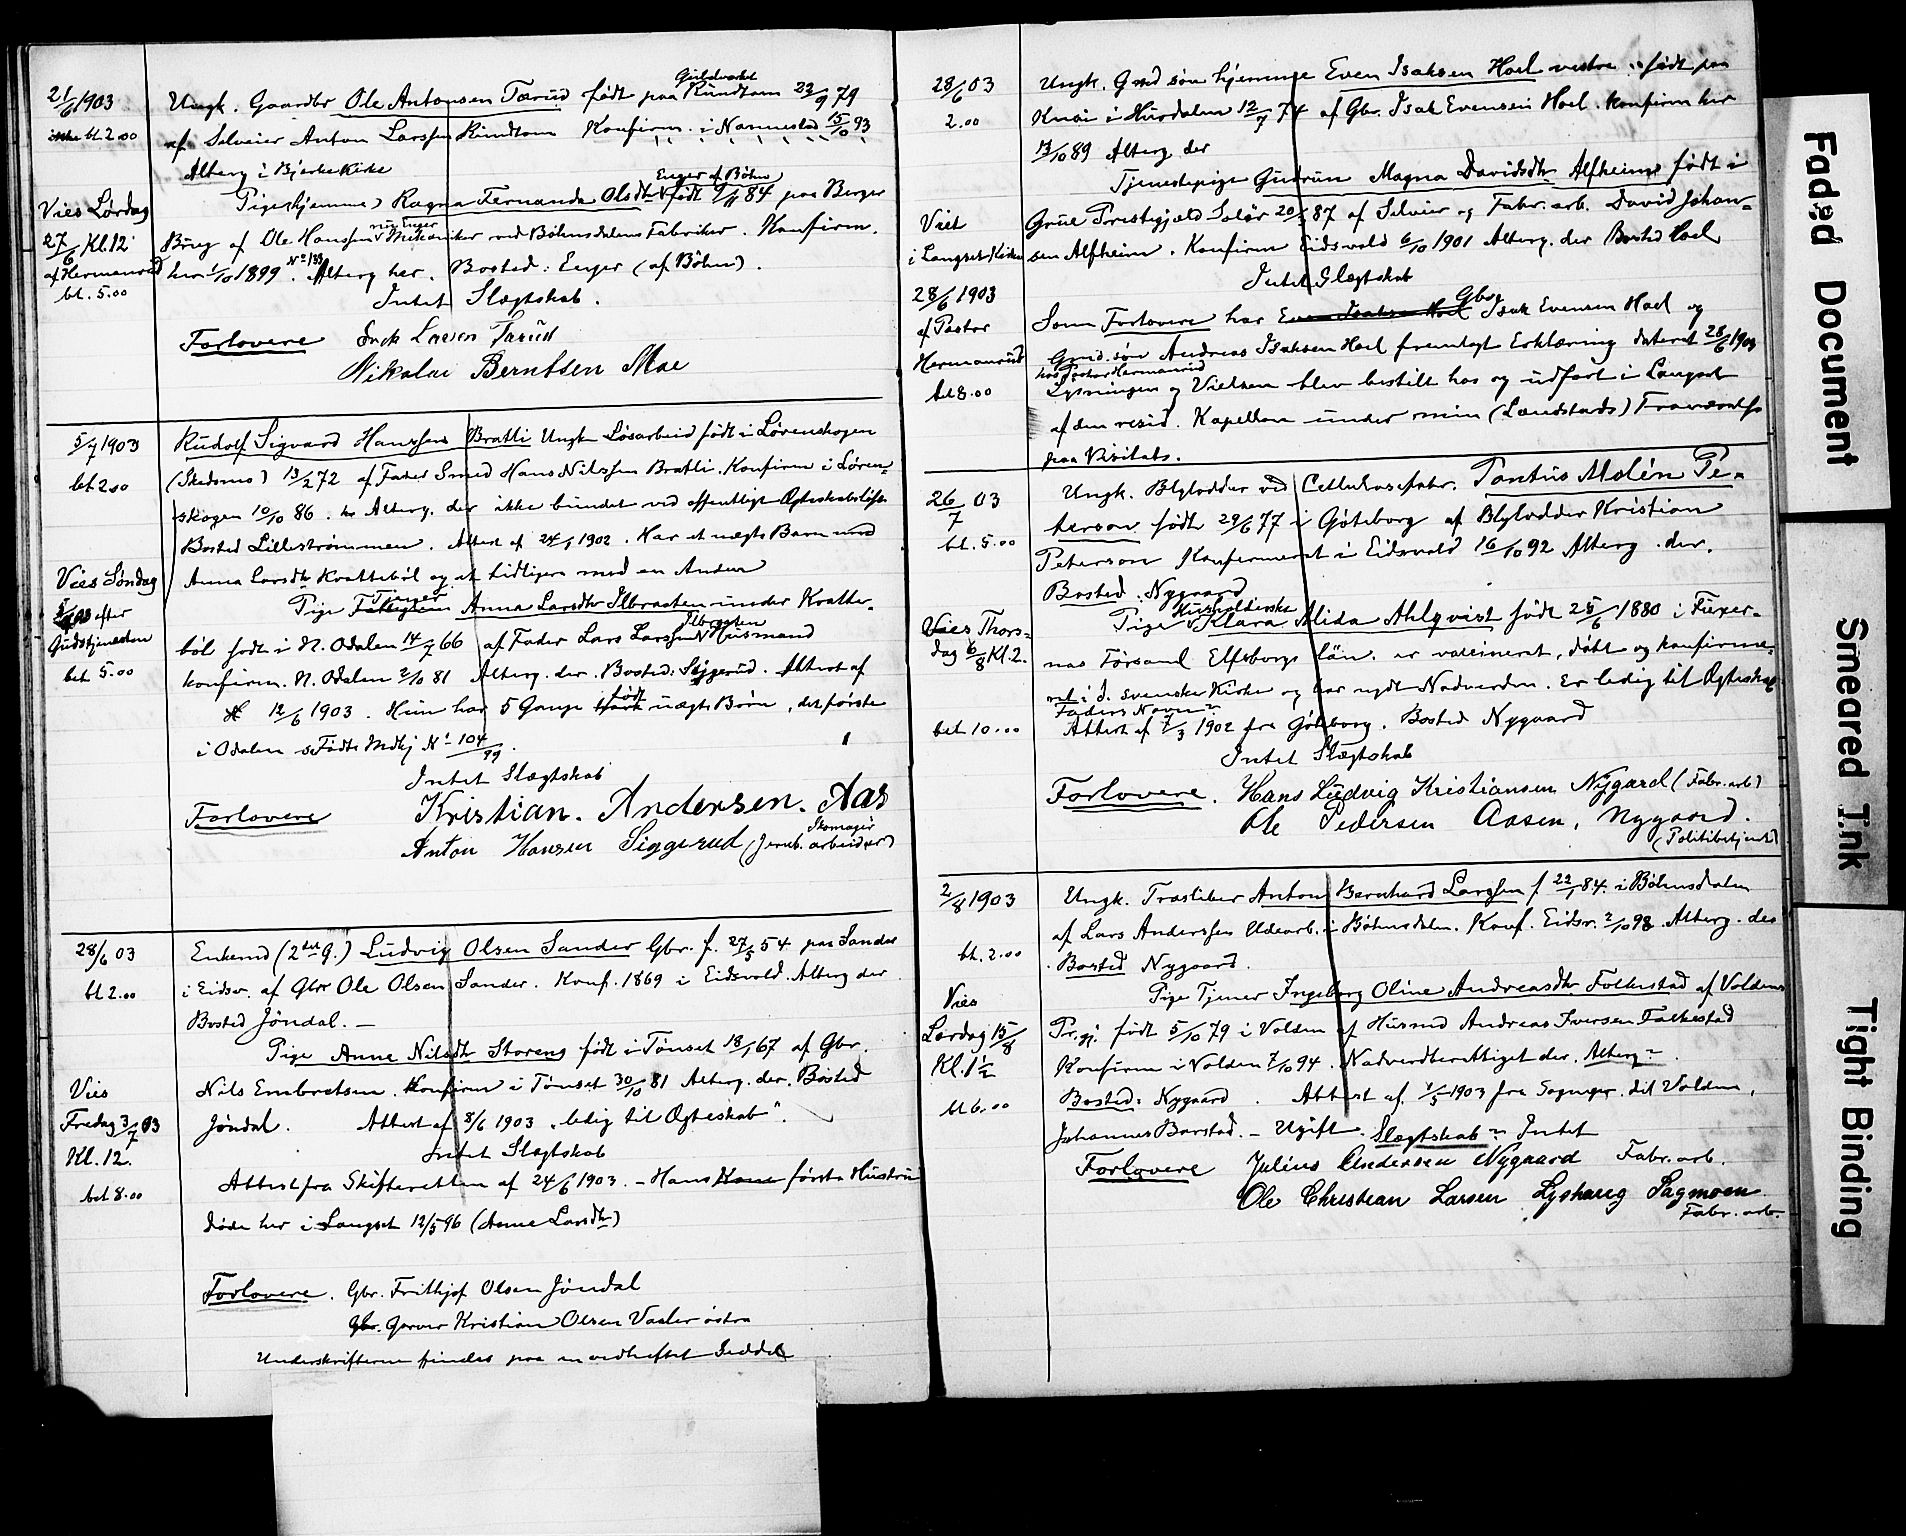 21/6 1903
bt. 2.00
Ungk. Gaardbr Ole Antonsen Tærud født paa Rundtom 22/9 79
Guldverket
af Selveier Anton Larssen Rundtom Konfirm. i Nannestad 15/10 93
Alterg i Bjerke Kirke
Vies Lørdag
27/6 Kl. 12
af Hermanrud
bt. 5.00
Enger af Bøhn
Pige (hjemme) Ragna Fernanda Olsdtr født 9/11 84 paa Berger
Brug af Ole Hanssen Enger Mekaniker ved Bøhnsdalens Fabriker. Konfirm.
her 1/10 1899 No 133. Alterg her. Bosted: Enger (af Bøhn).
Intet Slægtskab.
Forlovere Larsen Tærud
Nikolai Berntsen Moe
5/7 1903
bet 2.00
Rudolf Sigvard Hanssen Bratli Ungk Løsarbeid født i Lørenskogen
(Skedsmo) 13/2 72 af Fader Smed Hans Nilssen Bratli. Konfirm i Løren-
skogen 10/10 86. Alterg. der ikke bundet ved offentligt Ægteskabsløfte
Bosted Lillestrømmen. Attest af 24/1 1902. Har et uægte Barn med
Anna Larsdtr Krattebøl og et tidligere med en Anden
Vies Søndag
efter
Gudstjenesten
bet 5.00
Pige Tjener Anna Larsdtr Ilbraaten under Kratte-
bøl født i N. Odalen 14/7 66 af Fader Lars Larssen Ilbraaten Husmand
konfirm. N. Odalen 2/10 81 Alterg. der. Bosted: Siggerud. Attest af
12/6 1903. Hun har 5 Gange født uægte Børn, det første
i Odalen s. Fødte Mdkj No 104/99.
Intet Slægtskab
Forlovere Kristian. Andersen. Aas
Skomager
Anton Hansen Siggerud (Jernb. arbeider)
28/6 03
bt 2.00
Enkemd (2det g.) Ludvig Olsen Sander Gbr. f. 27/5 54 paa Sander
i Eidsv. af Gbr Ole Olsen Sander. Konf. 1869 i Eidsvold. Alterg der
Bosted Jøndal. —
Pige Anne Nilsdtr Storeng født i Tønset 18/1 67 af Gbr.
Vies
Fredag 3/7 03
Kl. 12.
bet 8.00
Nils Embretsen. Konfirm i Tønset 30/10 81 Alterg. der. Bosted
Jøndal. Attest af 8/6 1903 „ledig til Ægteskab".
Intet Slægtskab
Attest fra Skifteretten af 24/6 1903. – Hans Kone første Hustru
døde her i Langset 12/5 96 (Anne Larsdtr)
Forlovere. Gbr. Frithjof Olsen Jøndal
Gbr. Garver Kristian Olsen Vaaler østre
Underskrifterne findes paa en vedheftet Seddel
28/6 03
2.00
Ungk. Grd søn hjemme Even Isaksen Hoel vestre født paa
Knai i Hurdalen 12/7 74 af Gbr. Isak Evensen Hoel. Konfirm her
13/10 89 Alterg der
Tjenestepige Gudrun Magna Davidsdtr Alfheim født i
Viet
i Langset Kirke
28/6 1903
af Pastor
Hermanrud
bet 8.00
Grue Prestegjeld Solør 20/5 87 af Selveier og Fabr. arb. David Johan-
sen Alfheim. Konfirm Eidsvold 6/10 1901 Alterg. der Bosted Hoel
Intet Slægtskab
Som Forlovere har Even Isaksen Hoel Gbr Isak Evensen Hoel og
Grd. søn Andreas Isaksen Hoel fremlagt Erklæring dateret 28/6 1903
hos Pastor Hermanrud
Lysningen og Vielsen blev bestilt hos og udført i Langset
af den resid. Kapellan under min (Landstads) Fraværelse
paa Visitats.
26/7 03
bt. 5.00
Ungk. Blylodder ved Cellulosefabr. Pontus Molén Pe-
terson født 29/6 77 i Göteborg af Blylodder Kristian
Peterson Konfirmeret i Eidsvold 16/10 92 Alterg. der.
Bosted Nygaard
Vies Thors-
dag 6/8 Kl. 2.
bet 10.00
Husholderske
Pige Klara Alida Ahlqvist født 25/6 1880 i Fuxer-
nas Församl Elfsborgs län. er vaccineret, døbt og konfirme-
ret i d. svenske Kirke og har nydt Nadverden. Er ledig til Ægteskab
Faders Navn?
Attest af 7/3 1902 fra Göteborg. Bosted Nygaard
Intet Slægtskab
Forlovere. Hans Ludvig Kristiansen Nygard (Fabr. arb)
Ole Pedersen Aasen, Nygaard.
(Politibetjent)
2/8 1903
bt. 2.00
Ungk. Træsliber Anton Bernhard Larssen f 22/1 84. i Bøhnsdalen
af Lars Anderssen Udearb. i Bøhnsdalen. Konf. Eidsv. 2/10 98. Alterg. der
Bosted Nygaard.
Vies
Lørdag 15/8
Kl. 1½
bt 6.00
Pige Tjener Ingeborg Oline Andreasdtr Folkestad af Voldens
Pr.gj. født 5/10 79 i Volden af Husmd Andreas Iversen Folkestad
Konfirm i Volden 7/10 94. Nadverdberettiget der. Alterg?
Bosted: Nygaard. Attest af 1/5 1903 fra Sognepr. dit Volden,
Johannes Barstad. – Ugift. Slægtskab? Intet
Forlovere Julius Andersen Nygaard Fabr. arb.
Ole Christian Larsen Lyshaug Sagmoen
Fabr. arb.
Faded Document
Smeared Ink
Tight Binding